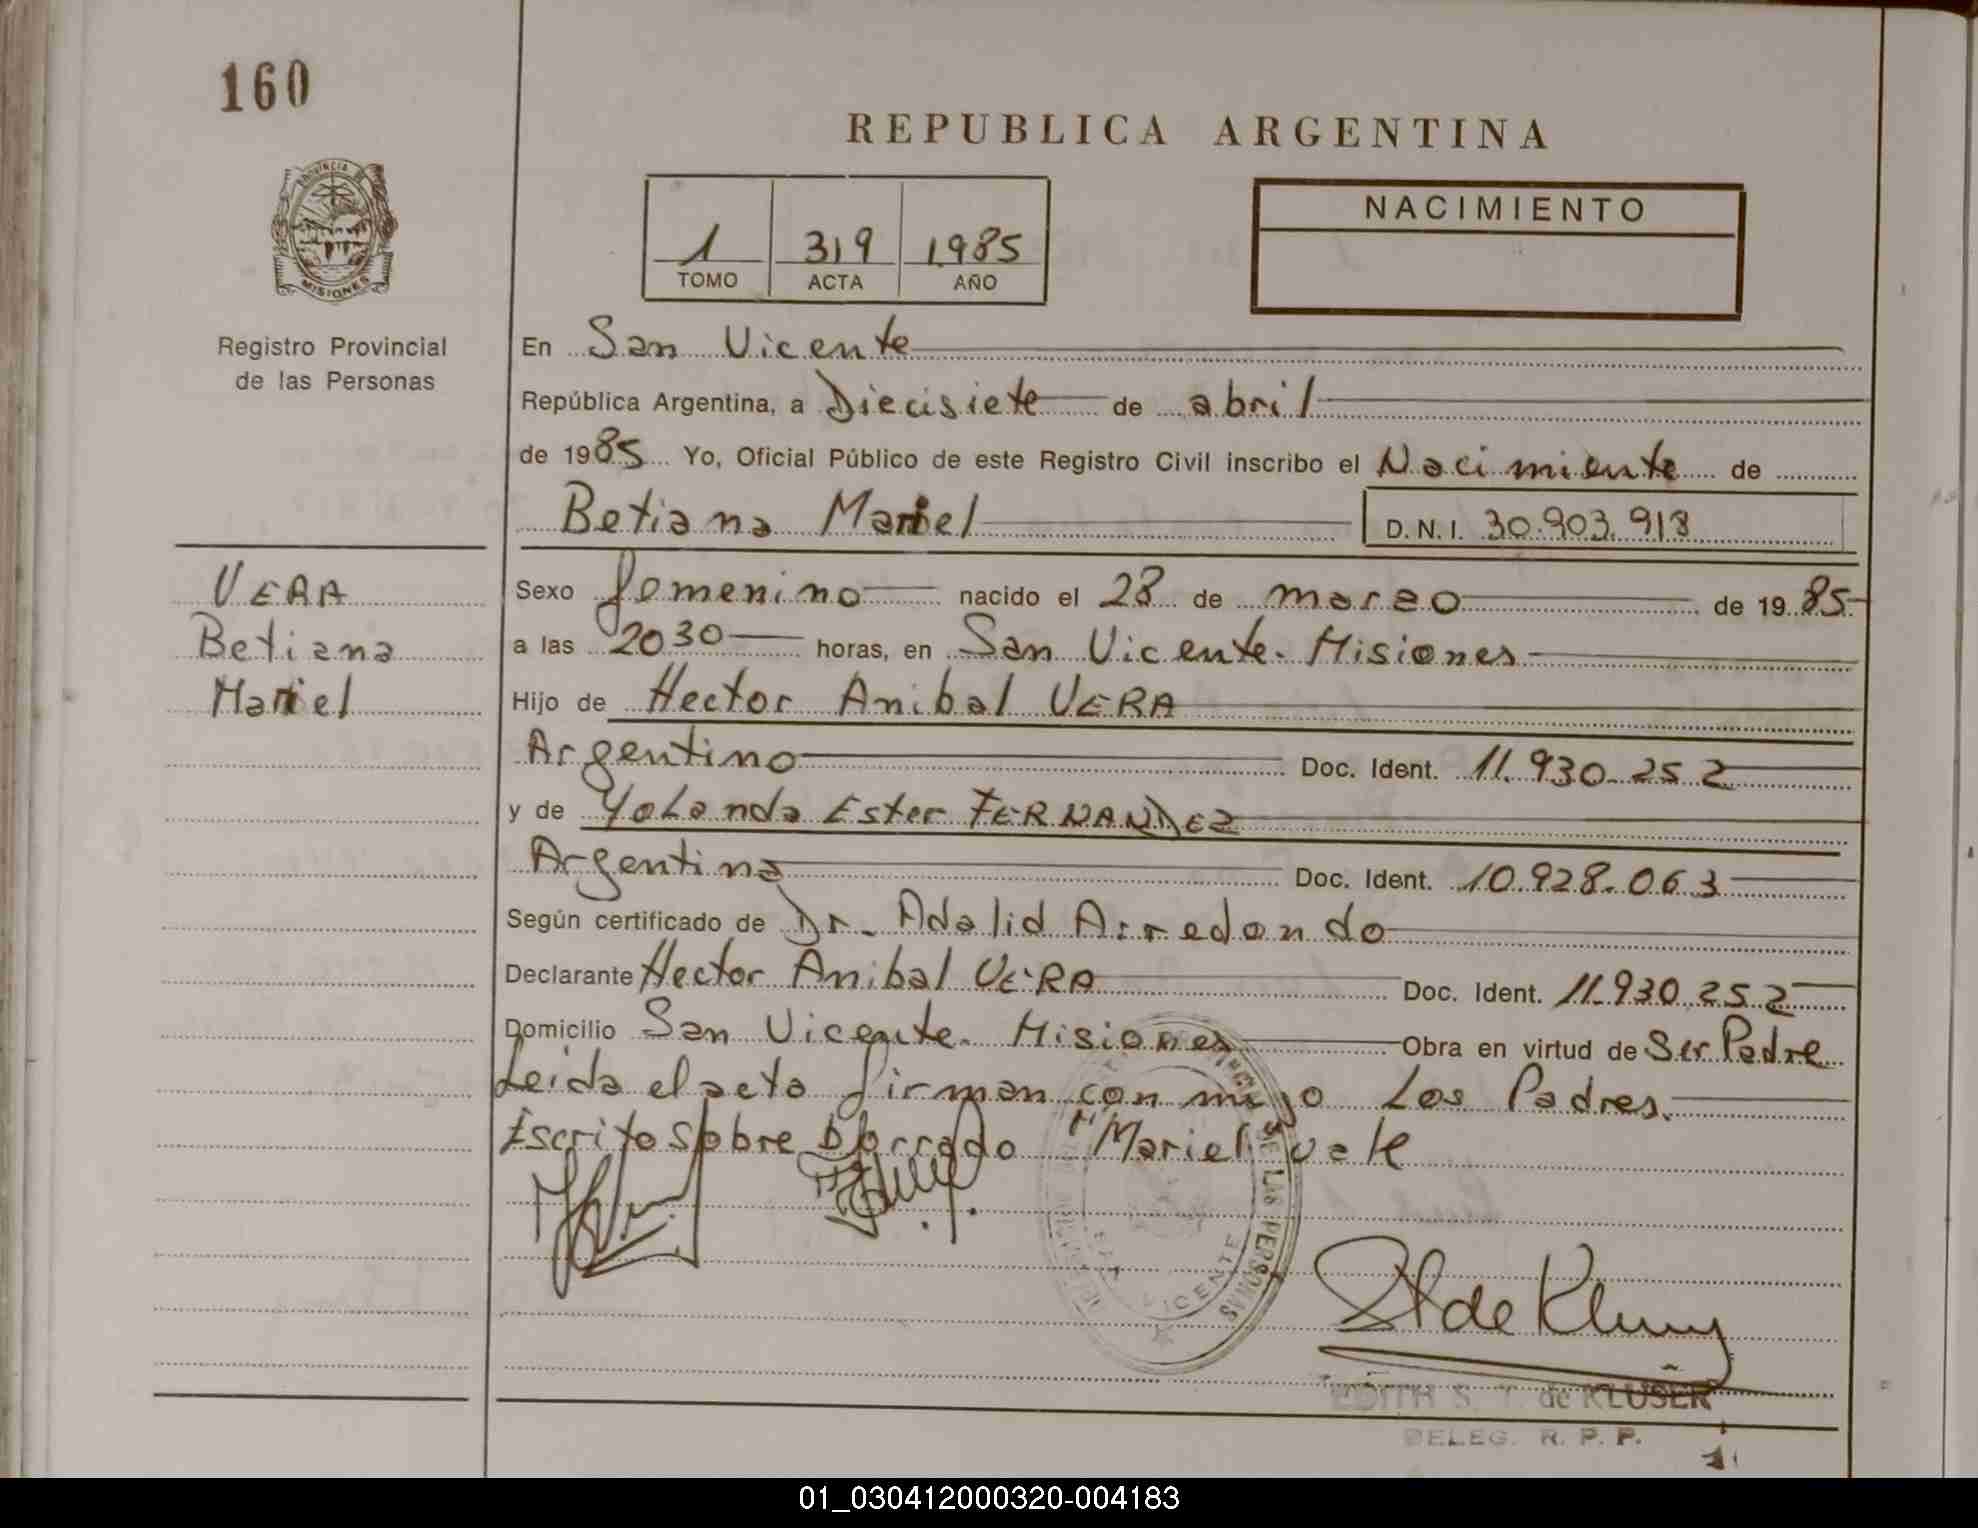 160
REPUBLICA ARGENTINA
PROVINCIA DE
MISIONES
Registro Provincial
de las Personas
1 319 1985
TOMO ACTA AÑO
NACIMIENTO
En San Vicente
República Argentina, a Diecisiete de abril
de 1985 Yo, Oficial Público de este Registro Civil inscribo el Nacimiento de
Betiana Mariel D.N.I. 30.903.918
VERA
Betiana
Mariel
Sexo femenino nacido el 28 de marzo de 1985
a las 2030 horas, en San Vicente. Misiones
Hijo de Hector Anibal VERA
Argentino Doc. Ident. 11.930.252
y de Yolanda Ester FERNANDEZ
Argentina Doc. Ident. 10.928.063
Según certificado de Dr. Adalid Arredondo
Declarante Hector Anibal VERA Doc. Ident. 11.930.252
Domicilio San Vicente. Misiones Obra en virtud de Ser Padre
Leida el acta firman con migo Los Padres.
Escrito sobre borrado "Mariel" vale
DE LAS PERSONAS
SAN VICENTE
EDITH S. T. de KLUSER
DELEG. R. P. P.
01_030412000320-004183